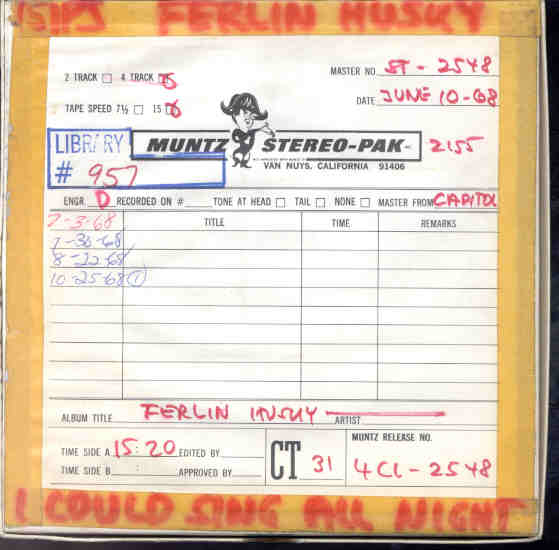 FERLIN HUSKY
2 TRACK 4 TRACK
MASTER NO. ST - 2548
TAPE SPEED 7½ 15
DATE JUNE 10-68
LIBRARY
# 957
MUNTZ STEREO-PAK 2155
VAN NUYS, CALIFORNIA 91406
ENGR. D RECORDED ON # TONE AT HEAD TAIL NONE MASTER FROM CAPITOL
TITLE TIME REMARKS
7-3-68
7-30-68
8-22-68
10-25-68 1
ALBUM TITLE FERLIN HUSKY ARTIST
TIME SIDE A 15:20 EDITED BY
TIME SIDE B : APPROVED BY
CT 31
MUNTZ RELEASE NO.
4CL-2548
I COULD SING ALL NIGHT